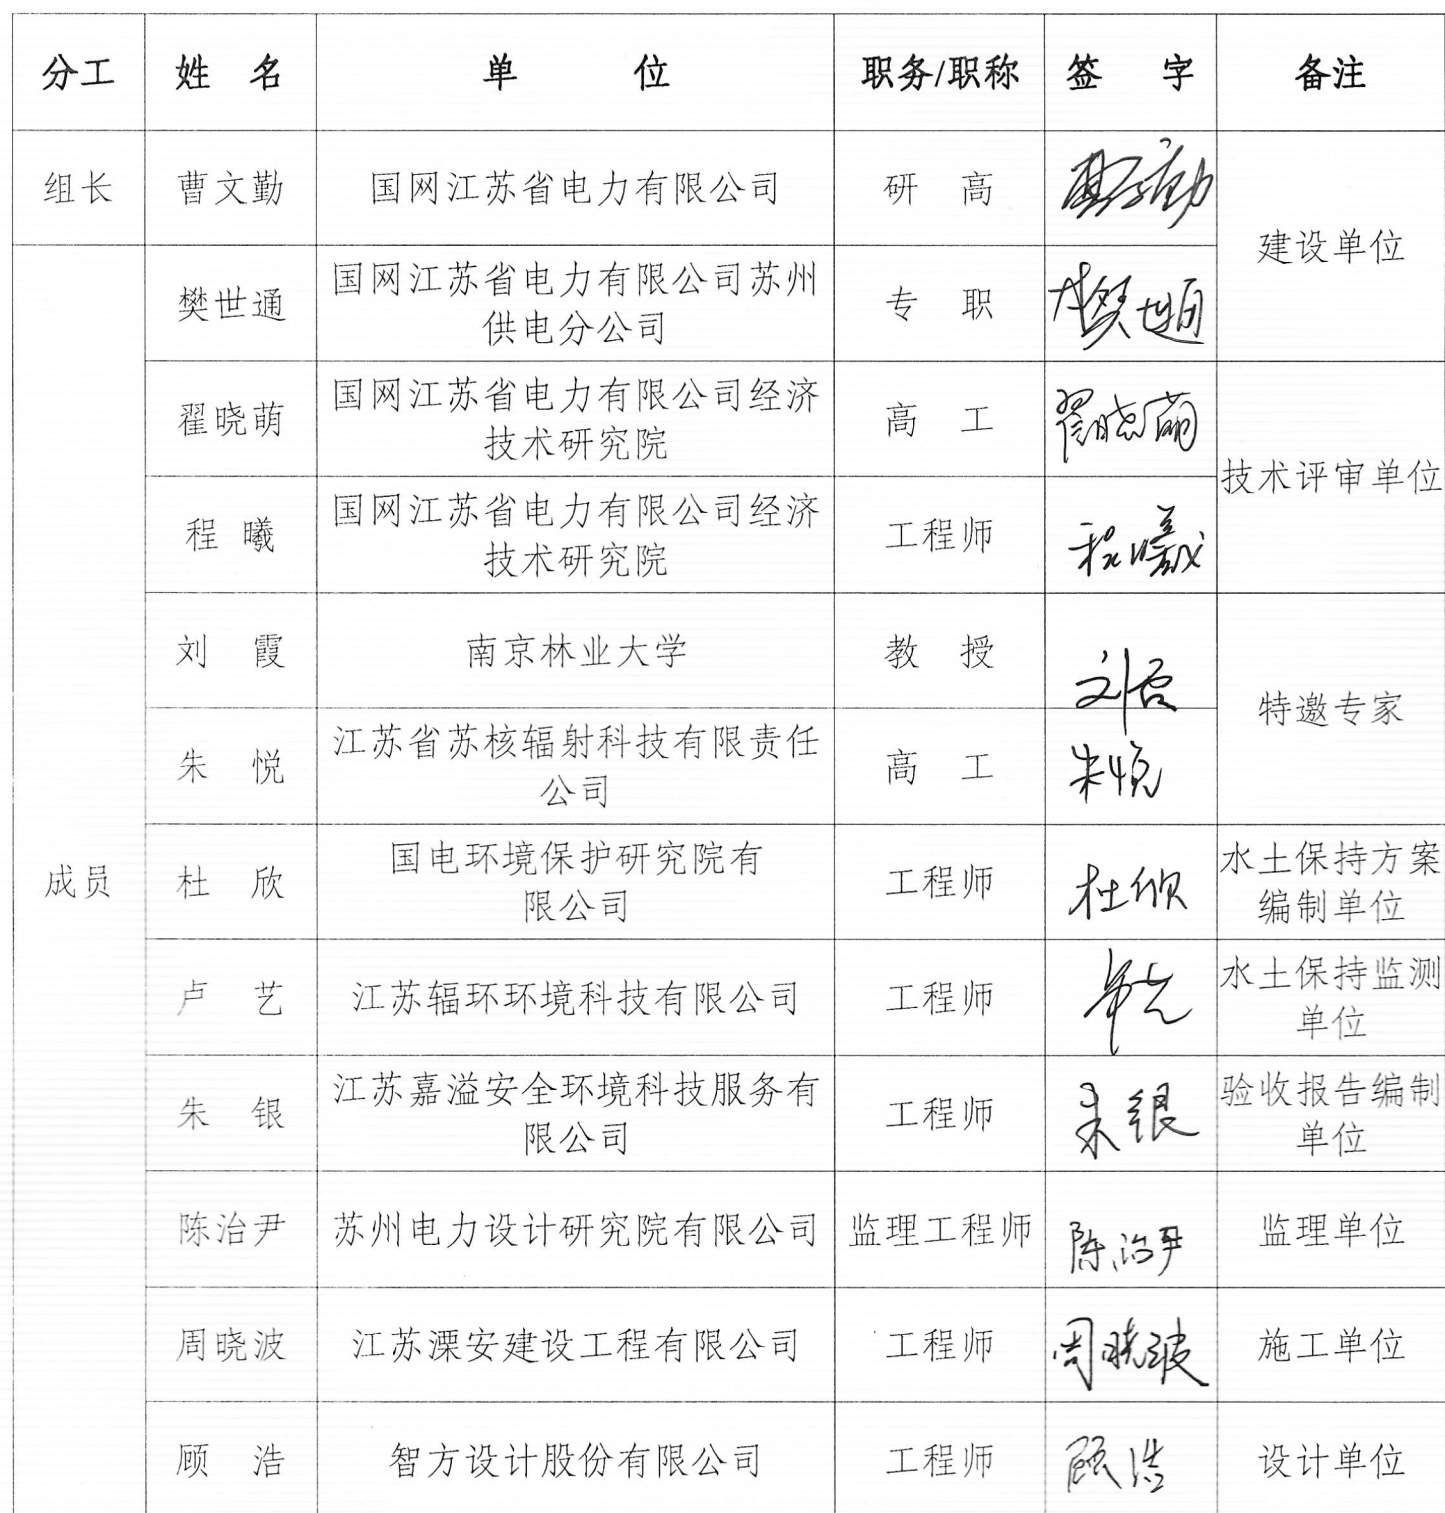 分工 姓 名 单 位 职务/职称 签 字 备注
组长 曹文勤 国网江苏省电力有限公司 研 高 曹文勤
建设单位
樊世通 国网江苏省电力有限公司苏州
供电分公司 专 职 樊世通
翟晓萌 国网江苏省电力有限公司经济
技术研究院 高 工 翟晓萌
技术评审单位
程 曦 国网江苏省电力有限公司经济
技术研究院 工程师 程曦
刘 霞 南京林业大学 教 授 刘霞
特邀专家
朱 悦 江苏省苏核辐射科技有限责任
公司 高 工 朱悦
成员 杜 欣 国电环境保护研究院有
限公司 工程师 杜欣 水土保持方案
编制单位
卢 艺 江苏辐环环境科技有限公司 工程师 水土保持监测
单位
朱 银 江苏嘉溢安全环境科技服务有
限公司 工程师 朱银 验收报告编制
单位
陈治尹 苏州电力设计研究院有限公司 监理工程师 陈治尹 监理单位
周晓波 江苏溧安建设工程有限公司 工程师 周晓波 施工单位
顾 浩 智方设计股份有限公司 工程师 顾浩 设计单位